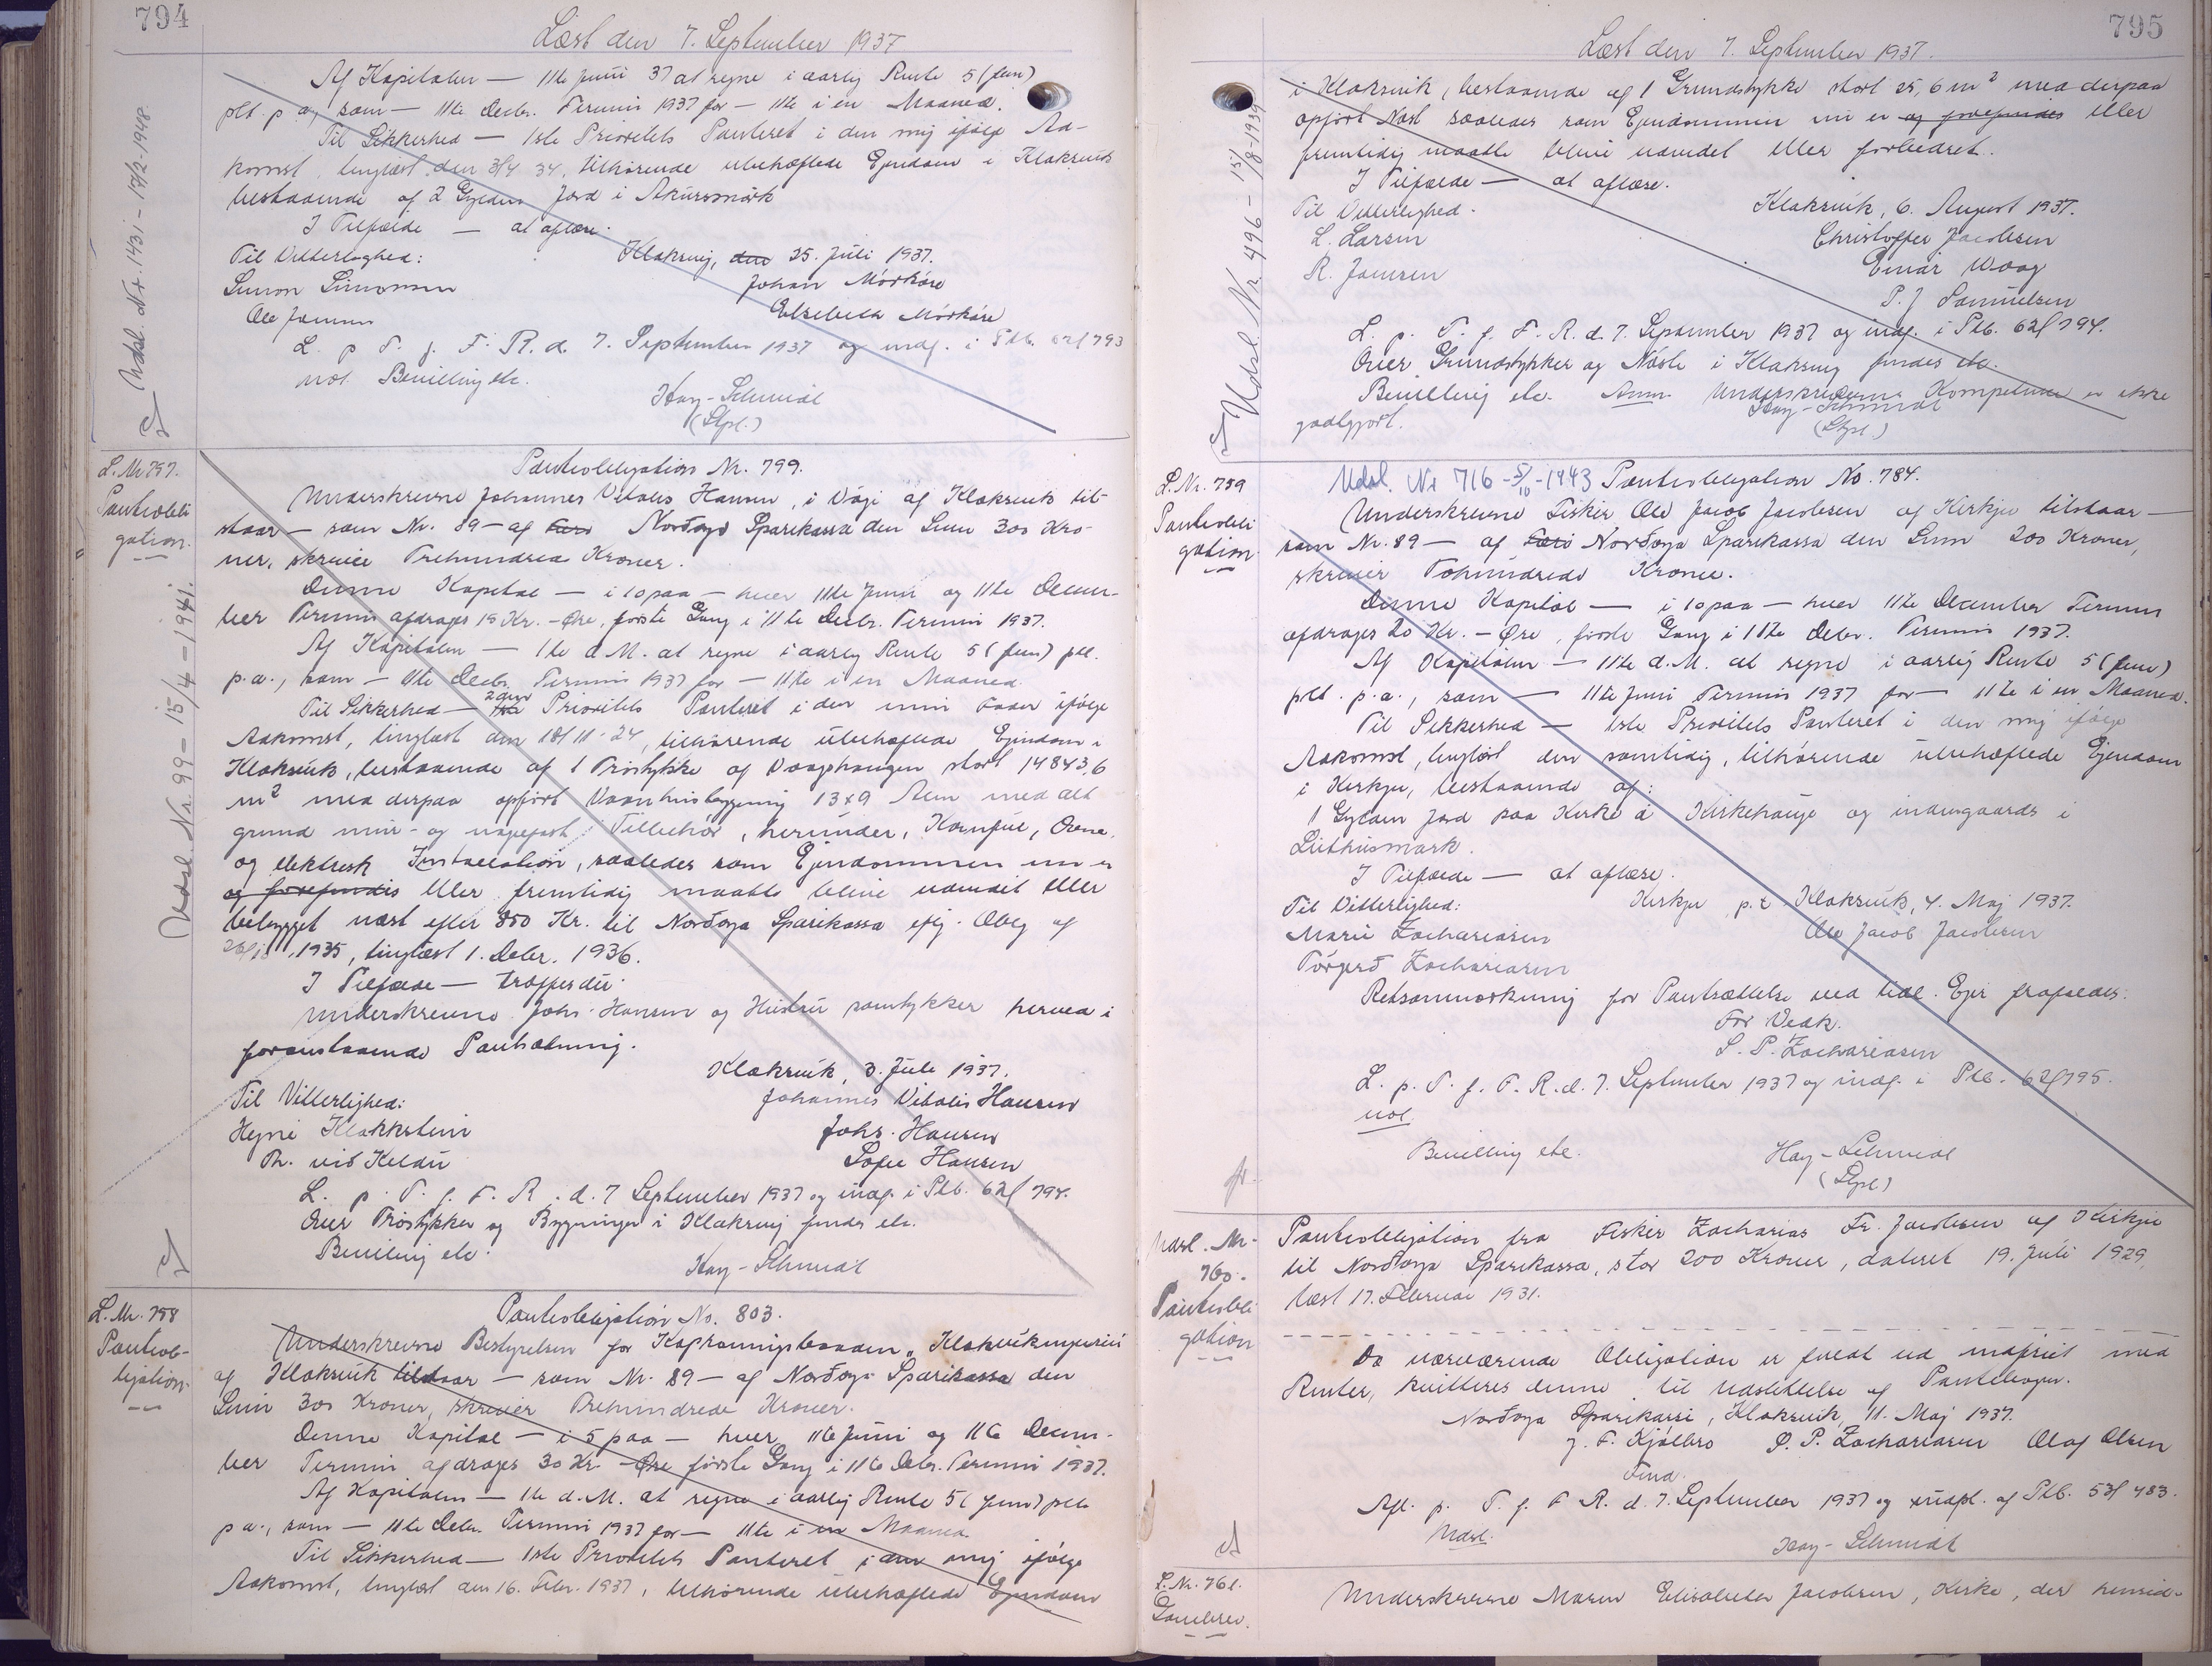 794
Læst den 7. September 1937
Af Kapitalen — 11te Juni 37 at regne i aarlig Rente 5 (fem)
pct. p. a., som — 11te Decbr. Termin 1937 for — 11te i en Maaned.
Til Sikkerhed — 1ste Prioritets Panteret i den mig ifølge Ad-
komst, tinglæst den 3/4 34, tilhørende ubehæftede Ejendom i Klaksvik
bestaaende af 2 Gylden Jord i Akursmørk
I Tilfælde — at aflæse.
Klaksvig, den 25. Juli 1937.
Til Vitterlighed:
Johan Mørkøre
Simon Simonsen
Elsebeth Mørkøre
Ole Jensen
L. p. T. f. F. R. d. 7. September 1937 og indf. i Ptb. 62f 793
not. Bevilling etc.
Hay-Schmidt
(Stpl.)
Udsl. Nr. 1431 - 17/2-1948
L. Nr. 757.
Pantobli
gation.
Udsl. Nr. 99 - 15/4 - 1941.
Pantobligation Nr. 799.
Underskrevne Johannes Vitalis Hansen, i Vági af Klaksvik til-
staar — som Nr. 89 — af Norðoya Sparikassa den Sum 300 Kro-
ner, skriver Trehundrede Kroner.
Denne Kapital — i 10 paa — hver 11te Juni og 11te Decem-
ber Termin afdrages 15 Kr. - Øre, første Gang i 11te Decbr. Termin 1937.
Af Kapitalen — 1te d. M. at regne i aarlig Rente 5 (fem) pct.
p. a., som — 11te Decbr. Termin 1937 for — 11te i en Maaned.
Til Sikkerhed — 2den 1ste Prioritets Panteret i den min Fader ifølge
Adkomst, tinglæst den 18/11-24, tilhørende ubehæftede Ejendom i
Klaksvik, bestaaende af 1 Trøstykke af Vaagshaugen stort 14843,6
m² med derpaa opført Vaaningsbygning 13x9 Alen med alt
grund mur- og nagelfast Tilbehør, herunder, Komfur, Ovne,
og elektrisk Installation, saaledes som Ejendommen nu er
og forefindes eller fremtidig maatte blive udvidet eller
bebygget næst efter 850 Kr. til Norðoya Sparikassa iflg. Oblg af
1935, tinglæst 1. Decbr. 1936.
I Tilfælde — træffes der.
Underskrevne Johs. Hansen og Hustru samtykker herved i
foranstaaende Pantsætning.
Klaksvik, 3. Juli 1937.
Til Vitterlighed:
Johannes Vitalis Hansen
Heini Klakkstein
Johs. Hansen
Th. við Keldu
Sofie Hansen
L. p. T. f. F. R. d. 7 September 1937 og indf. i Ptb. 62f 794.
Over Trøstykker og Bygninger i Klaksvig findes etc.
Bevilling etc.
Hay-Schmidt
L. Nr. 758
Pantob-
ligation.
Pantobligation No. 803.
Underskrevne Bestyrelsen for Kaproningsbaaden „Klaksvikingurin“
af Klaksvik tilstaar — som Nr. 89 — af Norðoya Sparikassa den
Sum 300 Kroner, skriver Trehundrede Kroner.
Denne Kapital — i 5 paa — hver 11te Juni og 11te Decem-
ber Termin afdrages 30 Kr. - Øre første Gang i 11te Decbr. Termin 1937.
Af Kapitalen — 11te d. M. at regne i aarlig Rente 5 (fem) pct.
p a., som — 11te Decbr. Termin 1937 for — 11te i en Maaned.
Til Sikkerhed — 1ste Prioritets Panteret i den mig ifølge
Adkomst, tinglæst den 16. Febr. 1937, tilhørende ubehæftede Ejendom
795
Læst den 7. September 1937.
i Klaksvik, bestaaende af 1 Grundstykke stort 25,6 m² med derpaa
opført Nøst saaledes som Ejendommen nu er og forefindes eller
fremtidig maatte blive udvidet eller forbedret.
I Tilfælde — at aflæse.
Klaksvik, 6. August 1937.
Til Vitterlighed.
Christoffer Jacobsen
L. Larsen
Einar Waag
R. Joensen
P. J Samuelsen
L. p. T. f. F. R. d. 7. September 1937 og indf. i Ptb. 62f 794.
Over Grundstykker og Nøste i Klaksvig findes etc.
Bevilling etc. Anm. Underskrivernes Kompetence er ikke
godtgjort.
Hay-Schmidt
(Stpl.)
Udsl. Nr. 496 - 15/8-1939
L. Nr. 759
Pantobli
gation.
Udsl. Nr 716 - 5/10 - 1943 Pantobligation No. 784.
Underskrevne Fisker Ole Jacob Jacobsen af Kirkju tilstaar —
som Nr. 89 — af Norðoya Sparikassa den Sum 200 Kroner,
skriver Tohundrede Kroner.
Denne Kapital — i 10 paa — hver 11te December Termin
afdrages 20 Kr. - Øre, første Gang i 11te Decbr. Termin 1937.
Af Kapitalen — 11te d. M. at regne i aarlig Rente 5 (fem)
pct. p. a., som — 11te Juni Termin 1937 for — 11te i en Maaned.
Til Sikkerhed — 1ste Prioritets Panteret i den mig ifølge
Adkomst, tinglæst den samtidig, tilhørende ubehæftede Ejendom
i Kirkju, bestaaende af:
1 Gylden Jord paa Kirke á Kirkehauge og indengaards i
Lithusmark.
I Tilfælde — at aflæse.
Kirkju p. t. Klaksvik, 4. Maj 1937.
Til Vitterlighed:
Ole Jacob Jacobsen
Marie Zachariasen
Tórgerð Zachariasen
Retsanmærkning for Pantsættelse ved tidl. Ejer frafaldes.
For Vedk.
S. P. Zachariasen
L. p. T. f. F. R. d. 7. September 1937 og indf. i Ptb. 62f 795.
not.
Bevilling etc.
Hay-Schmidt
(Stpl)
Udsl. Nr.
760.
Pantobli
gation
Pantobligation fra Fisker Zacharias Fr. Jacobsen af Kirkju
til Norðoya Sparikassa, stor 200 Kroner, dateret 19. Juli 1929,
læst 17. Februar 1931.
Da nærværende Obligation er fuldt ud indfriet med
Renter, kvitteres denne til Udslettelse af Pantebogen.
Norðoya Sparikassi, Klaksvik, 11. Maj 1937.
J. F. Kjølbro S. P. Zachariasen Olaf Olsen
Fmd.
Afl. p. T. f. F R. d. 7. September 1937 og udsl. af Ptb. 53f 483.
Udsl.
Hay-Schmidt
L. Nr. 761.
Gavebrev.
Underskrevne Maren Elisabeth Jacobsen, Kirke, der hensid-